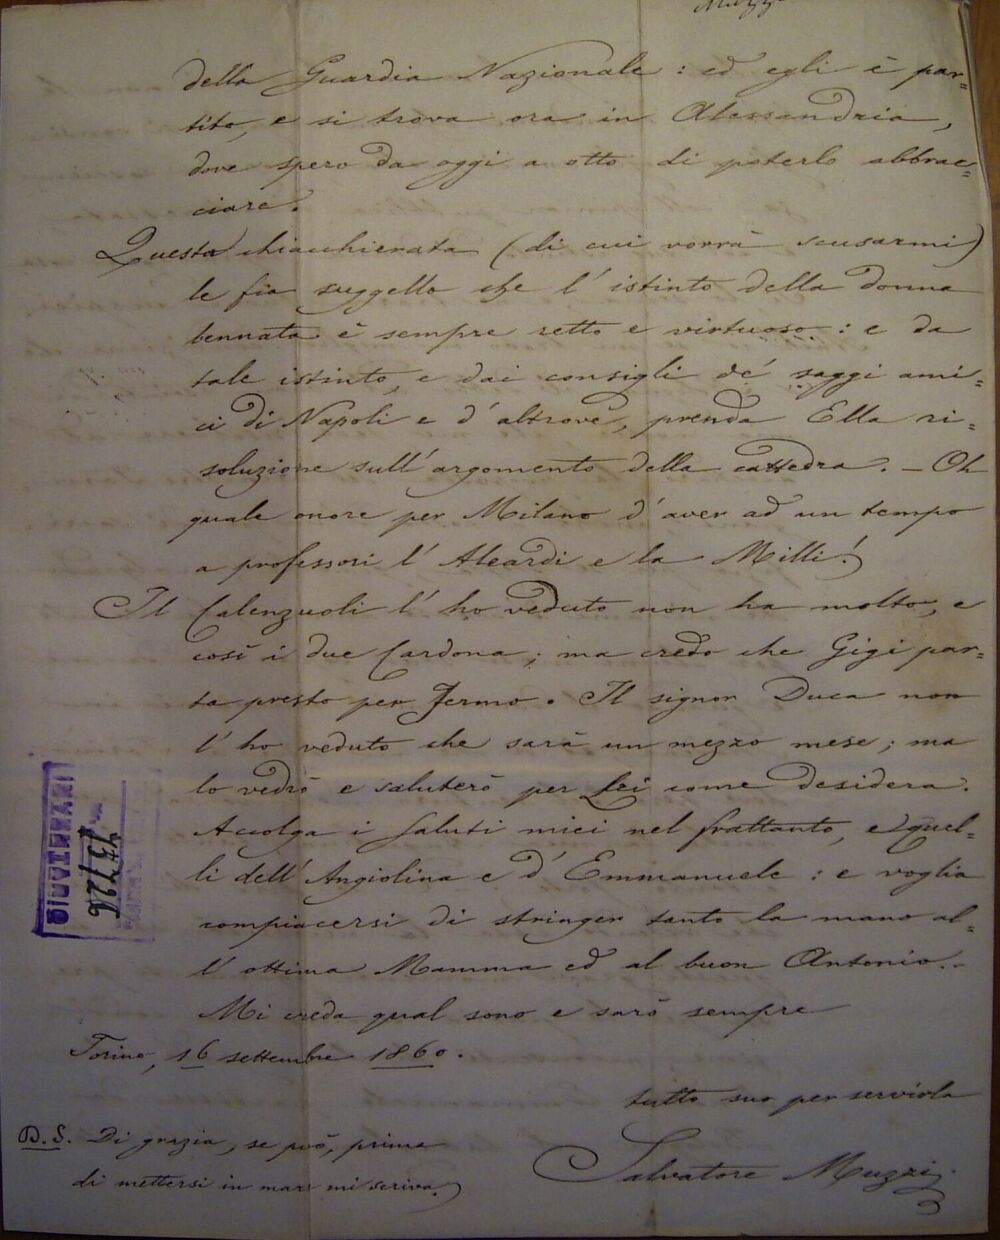 Muzzi
della Guardia Nazionale: ed egli è par=
tito, e si trova ora in Alessandria,
dove spero da oggi a otto di poterlo abbrac=
ciare.
Questa chiacchierata (di cui vorrà scusarmi)
le fia suggello che l'istinto della donna
bennata è sempre retto e virtuoso: e da
tale istinto, e dai consigli de' saggi ami=
ci di Napoli e d'altrove, prenda Ella ri=
soluzione sull'argomento della cattedra. — Oh
quale onore per Milano d'aver ad un tempo
a professori l'Aleardi e la Milli!
Il Calenzuoli l'ho veduto non ha molto, e
così i due Cardona; ma credo che Gigi par=
ta presto per Fermo. Il signor Duca non
l'ho veduto che sarà un mezzo mese; ma
lo vedrò e saluterò per Lei come desidera.
Accolga i saluti miei nel frattanto, e quel=
li dell'Angiolina e d'Emmanuele: e voglia
compiacersi di stringer tanto la mano al=
l'ottima Mamma ed al buon Antonio. —
Mi creda qual sono e sarò sempre
Torino, 16 settembre 1860.
tutto suo per servirla
Salvatore Muzzi.
P.S. Di grazia, se può, prima
di mettersi in mare mi scriva.